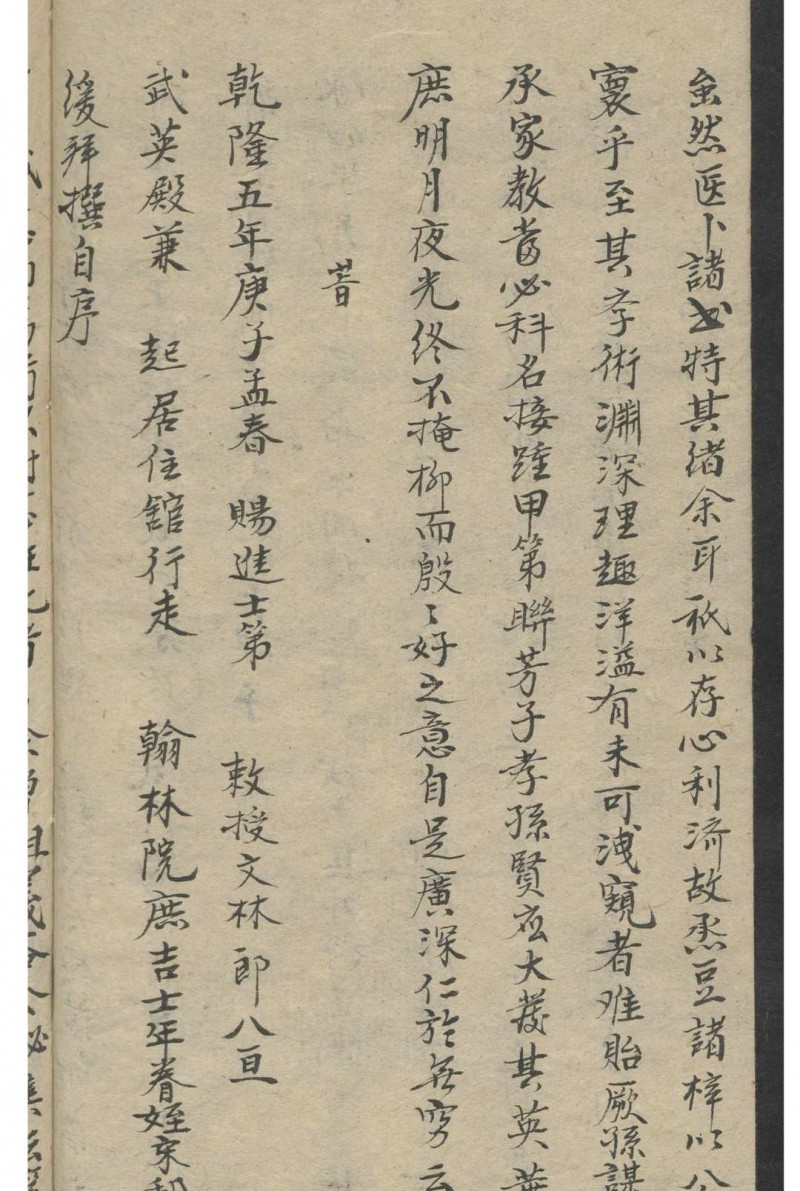 虽然医卜諸书特其緒余耳祇以存心利济故炁豆諸梓以公
寰乎至其孝術淵深理趣洋溢有未可洩窺者难貽厥孫謀
承家教當必科名接踵甲第聯芳子孝孫賢应大發其英華
庶明月夜光终不掩柳而殷〻好之意自是廣深仁於無穷云
旹
乾隆五年庚子孟春 賜進士第 敕授文林郎八亘
武英殿兼 起居住舘行走 翰林院庶吉士年眷姪宋
緩拜撰自序